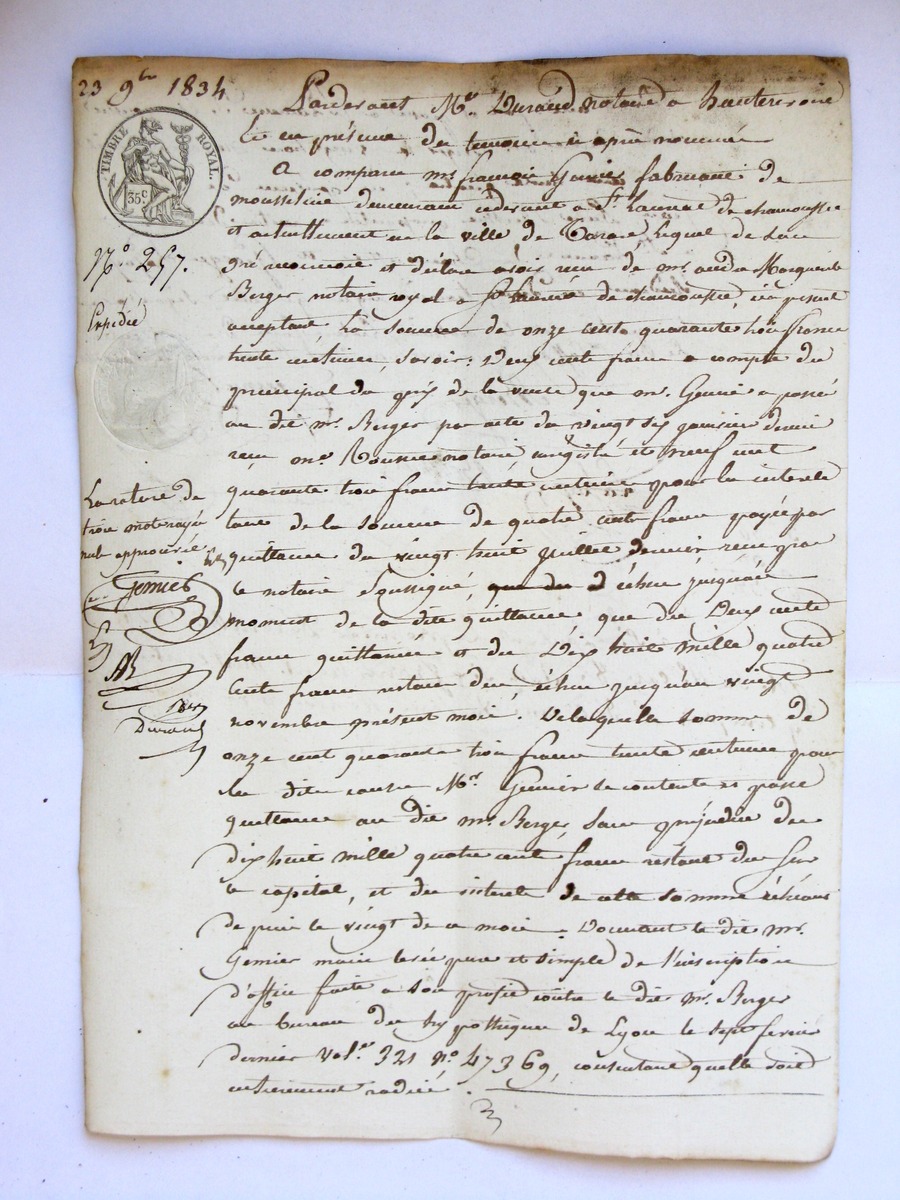 23 9bre 1834
TIMBRE ROYAL.
35 c.
N.o 257.
Expédié
La rature de
trois mots rayés
nuls approuvée
Gemier
AB
Durand
Pardevant Me. Durand, notaire à hauterivoire
et en présence des temoins ci après nommés
A comparu mr. françois Gemier fabricant de
mousseline demeurant cidevant à St. Laurent de chamousset
et actuellement en la ville de Tarare, lequel de son
gré reconnoit et déclare avoir reçu de mr. andré Marguerite
Berger notaire royal a St. laurent de chamousset, ici présent
acceptant la somme de onze cents quarante trois francs
trente centimes, savoir: Deux cents francs a compte du
principal du prix de la vente que mr. Gemier a passé
au dit mr. Berger par acte du vingt six janvier dernier
reçu me. Rousset notaire enregistré et neuf cent
quarante trois francs trente centimes pour les interets
tant de la somme de quatre cents francs payée par
quittance du vingt huit juillet dernier reçu par
le notaire soussigné, que du d échus jusqu'au
moment de la dite quittance, que des Deux cents
francs quittancés et des Dix huit mille quatre
cents francs restant dus échus jusqu'au vingt
novembre présent mois. De laquelle somme de
onze cent quarante trois francs trente centimes pour
les dites causes Mr. Gemier se contente et passe
quittance au dit mr. Berger, sans préjudice des
dix huit mille quatre cent francs restant du sur
le capital, et des interets de cette somme échus
depuis le vingt de ce mois. Donnant le dit mr.
Gemier main levée pure et simple de l'inscription
d'office faite a son profit contre le dit mr. Berger
au bureau des hypothèques de Lyon le sept fevrier
dernier vol.e 321 n.o 47369, consentant quelle soit
entierement radiée.